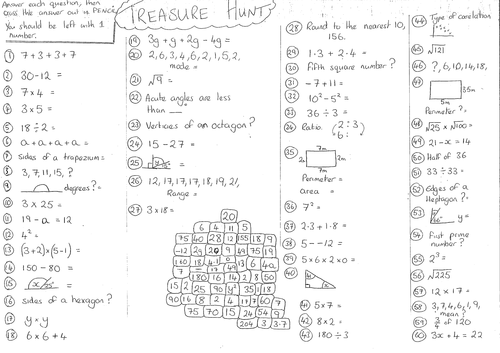 Answer each question, then
cross the answer out in PENCIL
You should be left with 1
number.
TREASURE HUNT
① 7+3+3+7
② 30-12 =
③ 7×4 =
④ 3×5 =
⑤ 18÷2 =
⑥ a+a+a+a =
⑦ sides of a trapezium =
⑧ 3,7,11,15,?
⑨ degrees?
⑩ 3×25 =
⑪ 19-a = 12
⑫ 4² =
⑬ (3+2)×(5-1) =
⑭ 150-80 =
⑮ x
⑯ sides of a hexagon?
⑰ y×y
⑱ 6×6+4
⑲ 3g+g+2g-4g =
⑳ 2,6,3,4,6,2,1,5,2,
mode =
㉑ √9 =
㉒ Acute angles are less
than __
㉓ Vertices of an octagon?
㉔ 15-27 =
㉕
㉖ 12,17,17,17,18,19,21,
Range =
㉗ 3×18 =
20
6 4 11 5
75 40 28 12 155 18 9
-12 29 20 9 49 75 19
160 18 0 13 6 4a
7 17 49
180 16 14 2 8 50
15 2 25 90 y² 35 1 18
90 16 8 2 4 17 7
75 70 15 24 54 9
204 3 3.7
㉘ Round to the nearest 10,
156.
㉙ 1.3+2.4 =
㉚ Fifth square number?
㉛ -7+11 =
㉜ 10²-5² =
㉝ 36÷3 =
㉞ Ratio 2:3
6:
㉟ 7m
2m 2m
7m
Perimeter =
area =
㊱ 7²
㊲ 2.3+1.8 =
㊳ 5--12 =
㊴ 5×6×2×0 =
㊵
㊶ 5×7 =
㊷ 8×2 =
㊸ 180÷3
㊹ Type of corelation
㊺ √121
㊻ ?,6,10,14,18,
㊼ 35m²
5m
Perimeter?
㊽ √25×√100 =
㊾ 21-x = 14
㊿ Half of 36
51 33÷33 =
52 Edges of a
Heptagon?
53 y =
54 First prime
number?
55 2³ =
56 √225
57 12×17 =
58 3,7,4,6,1,9,
mean?
59 ¾ of 120
60 3x+4 = 22